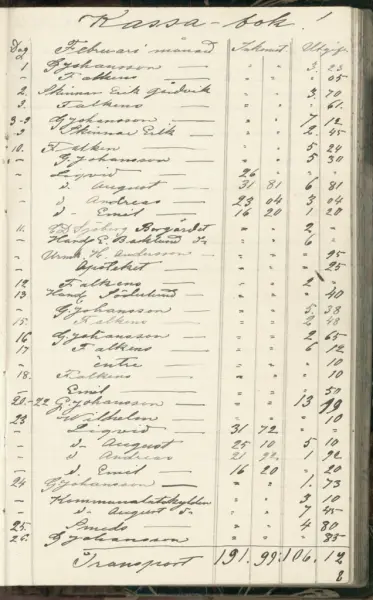 Kassa-bok!
Dag Februari månad Inkomst. Utgift.
1 G Johansson — " " 3. 23
- Falkens — " " " 05
2. Skinnar Erik — " " 3. 70
3. Falkens — " " " 61.
3-9 G Johansson — " " 7 12
- Skinnar Erik — " " 2. 45
10. Falken — " " 5 24
- G Johansson — " " 5 30
- Liqvid — 26 "
- d. August — 31 81 6 81
- d. Andreas — 23 04 3 04
- d- Emil — 16 20 1 20
11. Sjöberg Borgärdet " " 2. -
- Hand E. Baklund d- " " 6 -
- H. Andersson — " " " 95
- Apoteket — " " " 25
12 Falkens — " " 2 -
13 Hand. Söderlund — " " " 40
- G Johansson — " " 5. 38
15. Falkens — " " 2 48
16 G Johansson — " " 2 65
17 Falkens — " " 6 12
- entre — " " " 10
18. Falkens — " " " 10
- Emil — " " " 50
20.-22 G Johansson — " " 13 79
23 Wilhelm — " " " 10
- Liqvid — 31 72 " "
- d. August — 25 10 5 10
- d Andreas — 21 92 1 92
- d. Emil — 16 20 " 20
24 G Johansson — " " 1. 73
- Kommunalutskylder " " 3 10
- d- August d- " " 7 45
25. Smeds — " " 4 80
26. G Johansson — " " " 35
Transport 191. 99: 106. 12
8